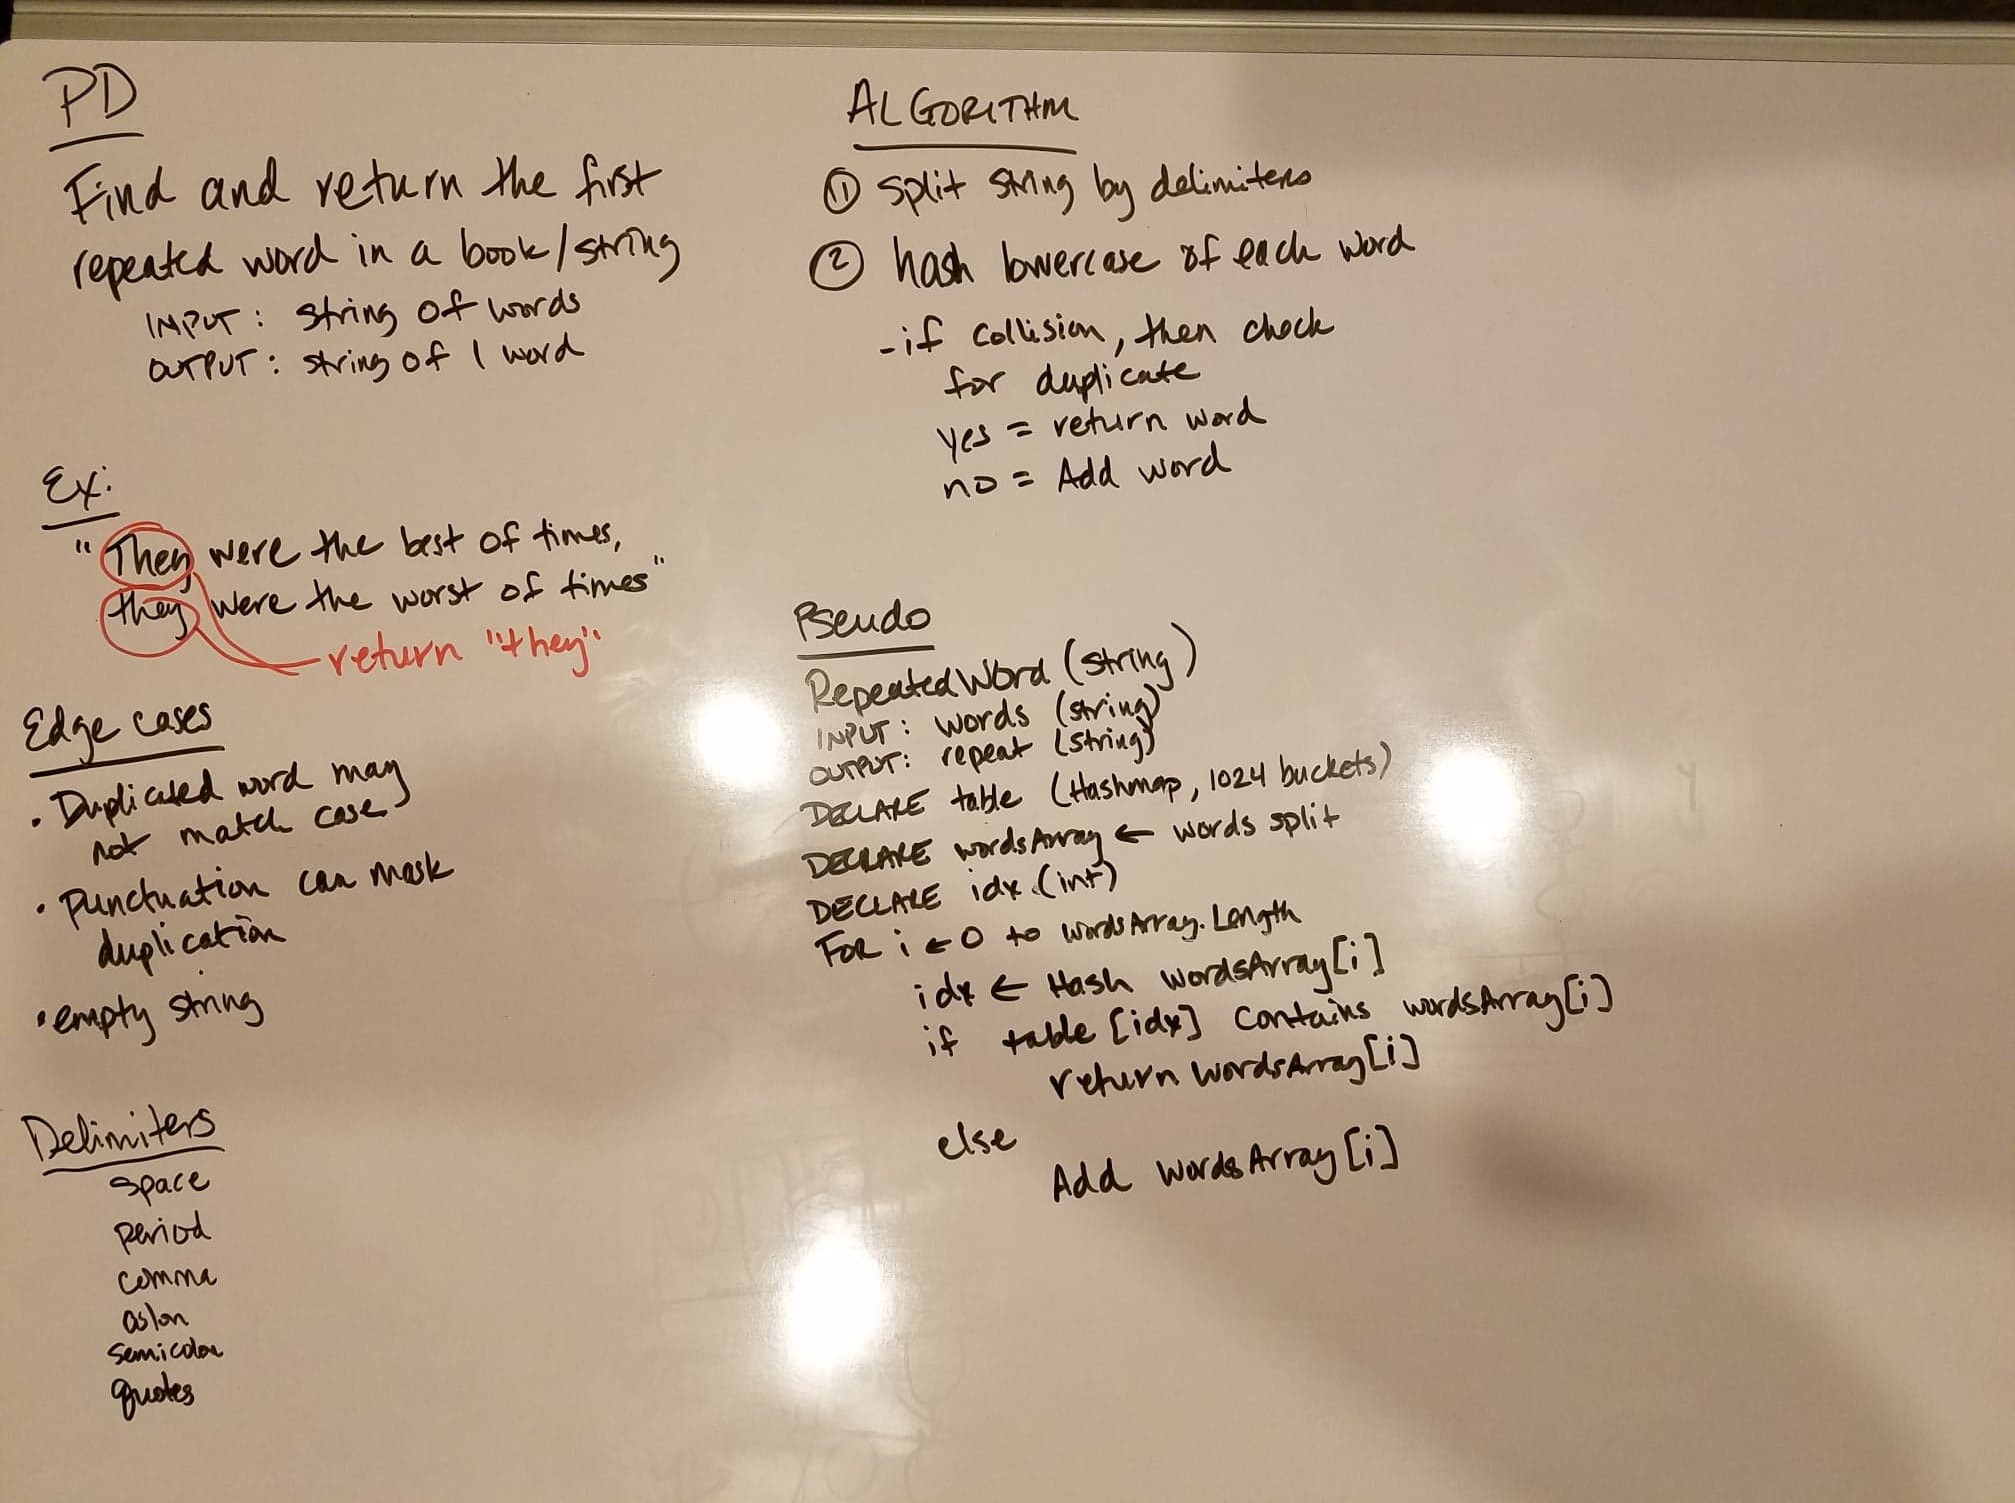 PD
Find and return the first
repeated word in a book/string
INPUT: string of words
OUTPUT: string of 1 word
Ex:
"They were the best of times,
they were the worst of times"
return "they"
Edge cases
• Duplicated word may
not match case
• Punctuation can mask
duplication
• empty string
Delimiters
space
period
comma
colon
semicolon
quotes
ALGORITHM
① split string by delimiters
② hash lowercase of each word
- if collision, then check
for duplicate
yes = return word
no = Add word
Pseudo
RepeatedWord (string)
INPUT: words (string)
OUTPUT: repeat (string)
DECLARE table (Hashmap, 1024 buckets)
DECLARE wordsArray ← words split
DECLARE idx (int)
FOR i ← 0 to wordsArray.Length
idx ← Hash wordsArray[i]
if table [idx] contains wordsArray[i]
return wordsArray[i]
else
Add wordsArray[i]